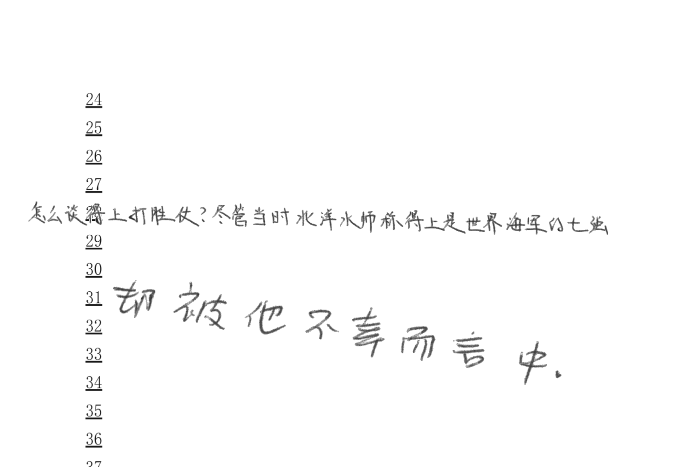 24
25
26
27
怎么谈得上打胜仗?尽管当时北洋水师称得上是世界海军的七强
29
30
31
却被他不幸而言中.
32
33
34
35
36
37